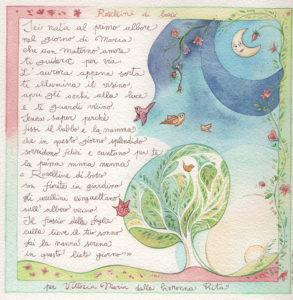 Roselline di bosco
Sei nata al primo albore
nel giorno di Maria
che con materno amore
ti guiderà per via.
L'aurora appena sorta
ti illumina il visino,
apri gli occhi alla luce
e ti guardi vicino.
Tenera saper perché
fissi il babbo e la mamma
che in questo giorno splendido
sorridono felici e cantano per te
la prima ninna nanna
e Roselline di bosco
son fiorite in giardino
gli uccellini cinguettano
sull'albero vicino.
Il fruscio delle foglie
culla lieve il tuo sonno
fai la nanna serena
in questo lieto giorno
per Vittoria Maria dalla bisnonna Rita